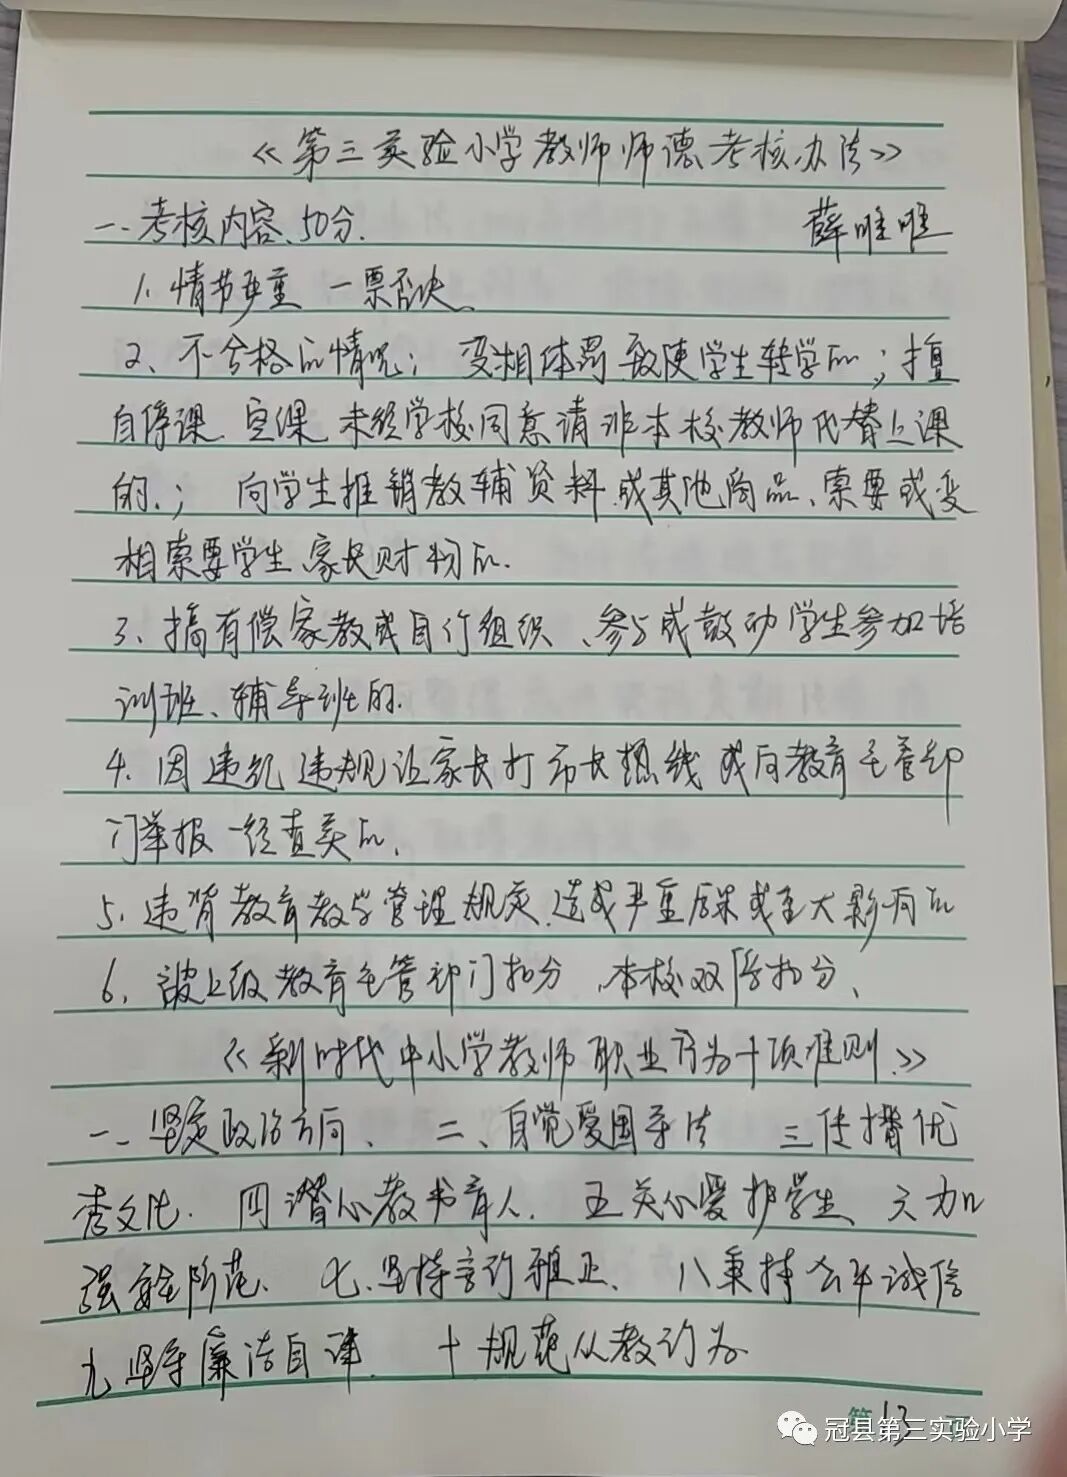 《第三实验小学教师师德考核办法》
一、考核内容、50分.
薛唯唯
1、情节严重 一票否决、
2、不合格的情况；变相体罚致使学生转学的；擅
自停课、空课、未经学校同意请非本校教师代替上课
的、；向学生推销教辅资料或其他商品、索要或变
相索要学生、家长财物的.
3、搞有偿家教或自行组织、参与或鼓动学生参加培
训班、辅导班的.
4、因违纪违规让家长打市长热线或向教育主管部
门举报一经查实的、
5、违背教育教学管理规定、造成严重后果或重大影响的
6、被上级教育主管部门扣分、本校双倍扣分、
《新时代中小学教师职业行为十项准则》
一、坚定政治方向、 二、自觉爱国守法 三传播优
秀文化. 四潜心教书育人. 五关心爱护学生、 六加
强安全防范、 七、坚持言行雅正. 八秉持公平诚信
九坚守廉洁自律. 十规范从教行为
第13页
冠县第三实验小学